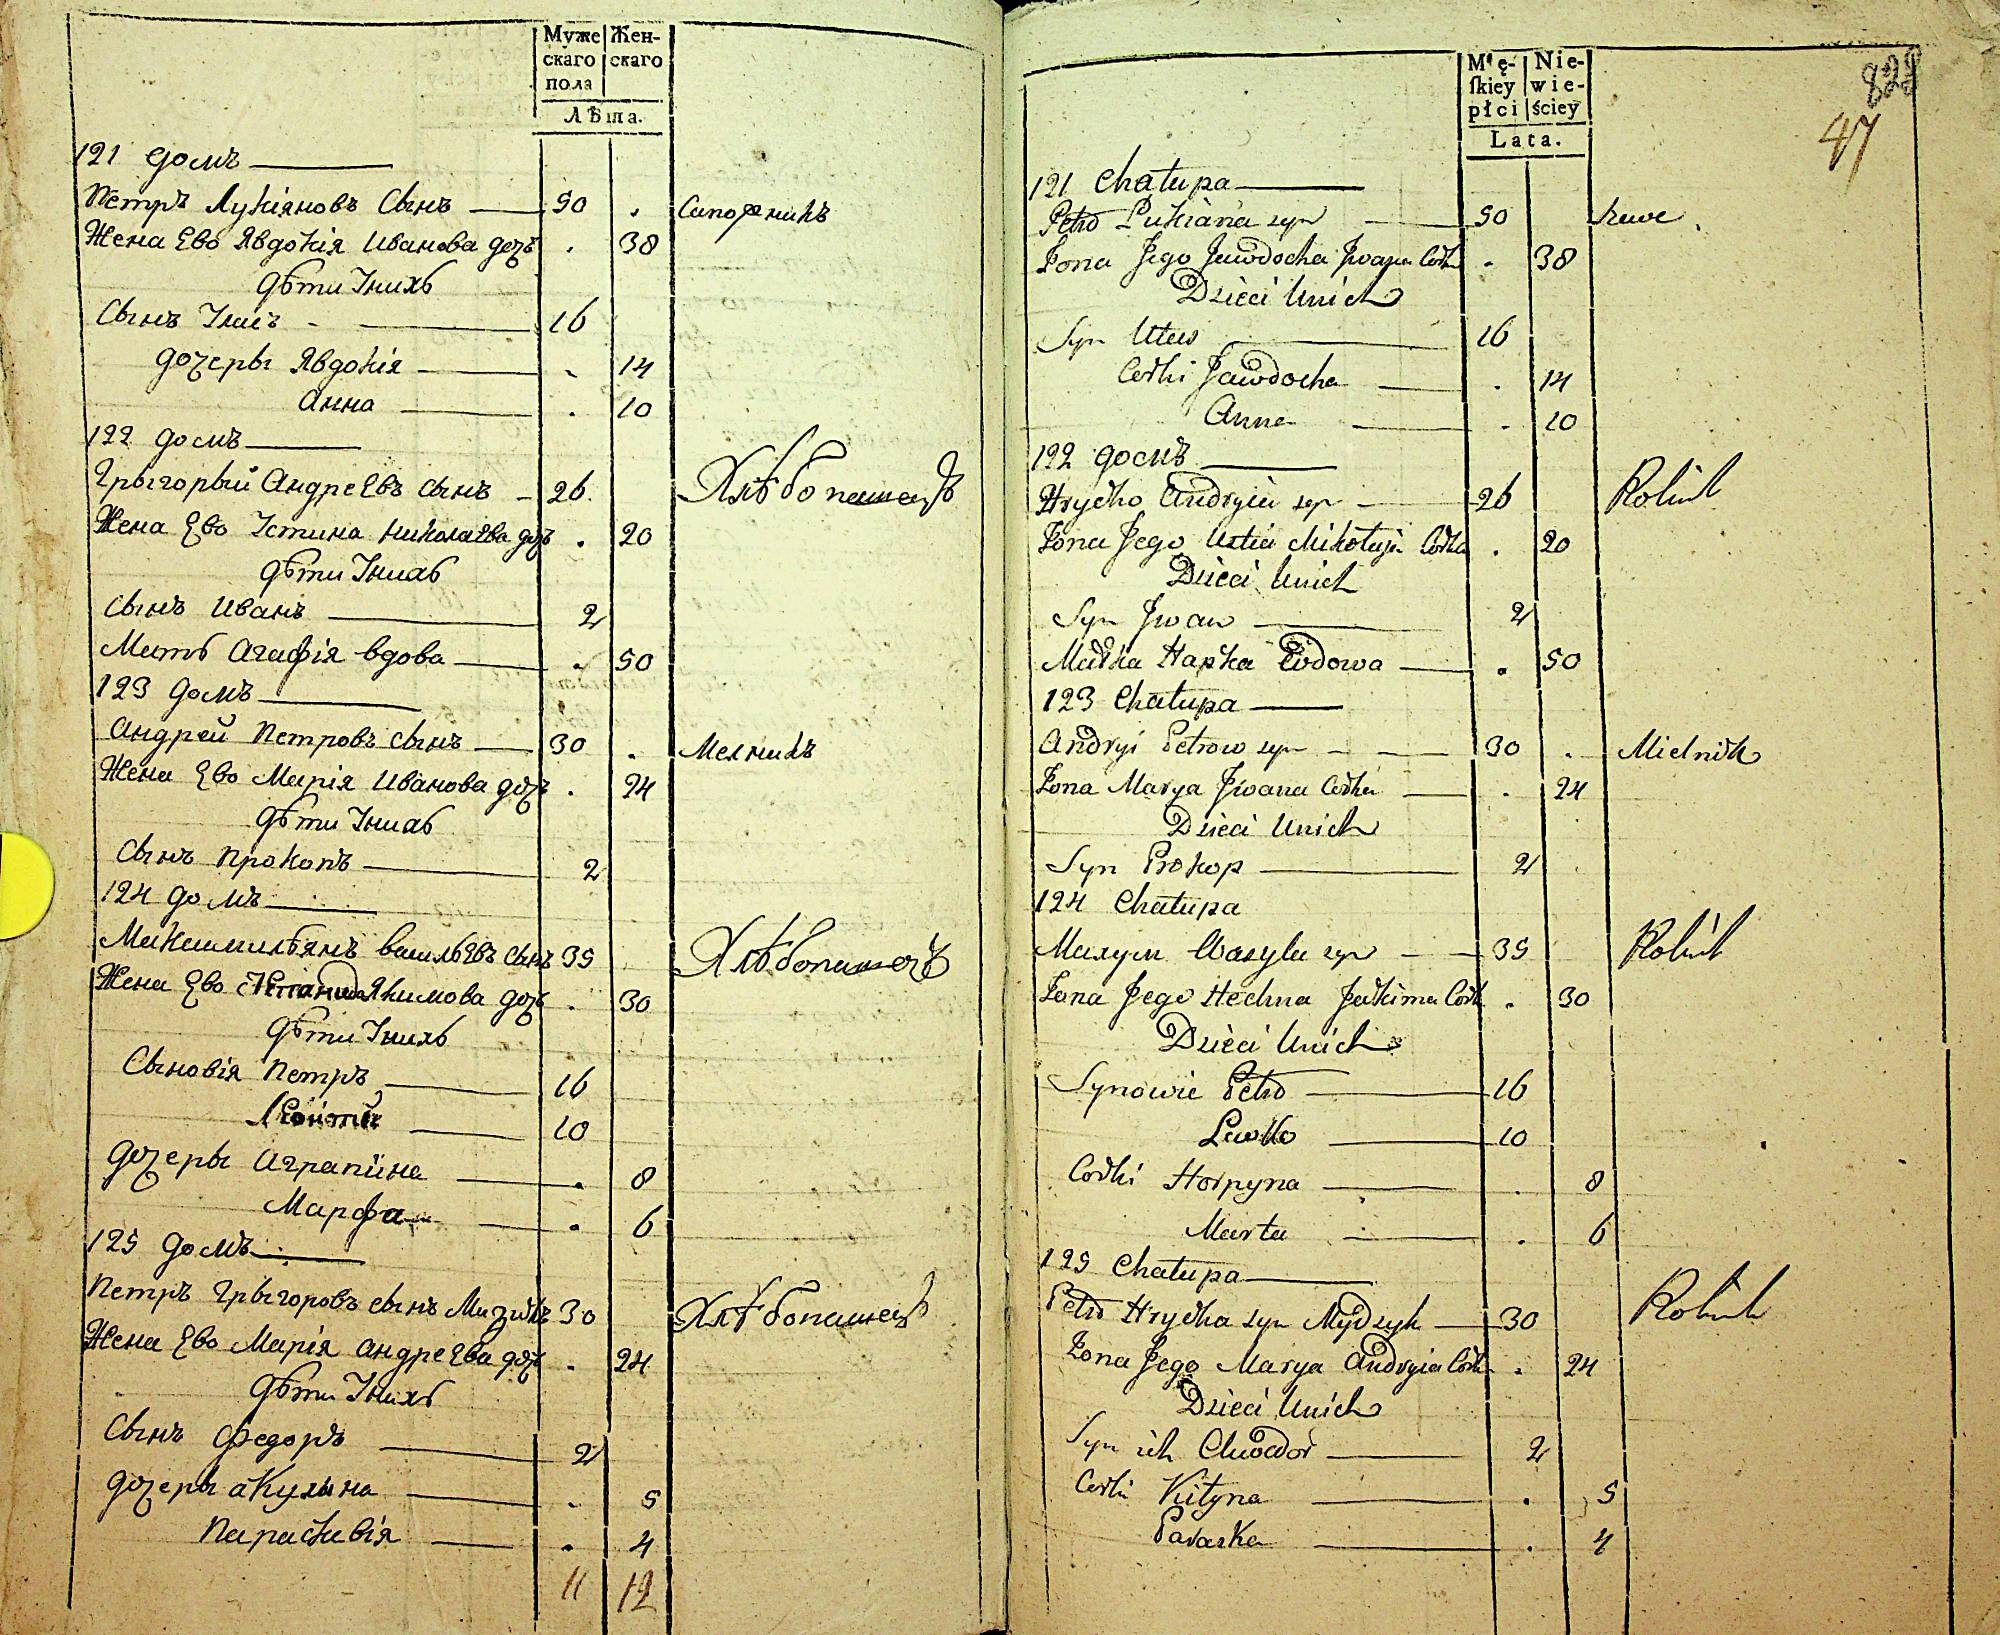 Муже Жен-
скаго скаго
пола
Лѣта.
121 домъ
Петръ Лукіяновъ Сынъ 50 . Сапожникъ
Жена Ево Явдокія Иванова доч . 38
дѣти Ihихъ
Сынъ 16
дочеры Явдокія . 14
Анна . 10
122 домъ
Грыгорый Андреевъ сынъ 26 Хлѣбопашецъ
Жена Ево Iстина Николаева доч . 20
дѣти Ihихъ
Сынъ Иванъ 2
Мать Агафія вдова . 50
123 домъ
Андрей Петровъ сынъ 30 . Мелникъ
Жена Ево Марія Иванова доч . 24
дѣти Ihихъ
Сынъ Прокопъ 2
124 домъ
Макшмильянъ васильевъ сынъ 35 Хлѣбопашецъ
Жена Ево Якимова доч . 30
дѣти Ihихъ
Сыновія Петръ 16
10
дочеры Аграпина . 8
Марфа . 6
125 домъ
Петръ Грыгоровъ сынъ Мизикъ 30 Хлѣбопашецъ
Жена Ево Марія Андреева доч . 24
дѣти Ihихъ
Сынъ Федоръ 2
дочеры акулина . 5
Параскивія . 4
11 12
822
47
Mę- Nie-
ſkiey wie-
płci ściey
Lata.
121 Chałupa
Petro Łukiana syn 50 Szewc
Żona Jego Jawdocha Jwana Corka . 38
Dzieci Unich
Syn 16
Corki Jawdocha . 14
Anna . 10
122 домъ
Hryćko Andryia syn 26 Rolnik
Żona Jego Ustia Mikołaja Corka . 20
Dzieci Unich
Syn Jwan 2
Matka Hapka Wdowa . 50
123 Chałupa
Andryi Petrow syn 30 . Mielnik
Żona Marya Jwana Corka . 24
Dzieci Unich
Syn Prokop 2
124 Chałupa
Maxym Wasyla syn 35 Rolnik
Żona Jego Hechna Jakima Cork . 30
Dzieci Unich
Synowie Petro 16
Lewko 10
Corki Horpyna . 8
Marta . 6
125 Chałupa
Petro Hryćka syn Mydzyk 30 Rolnik
Żona Jego Marya Andryia Cork . 24
Dzieci Unich
Syn ich Chwedor 2
Corki Kilyna . 5
Paraska . 4